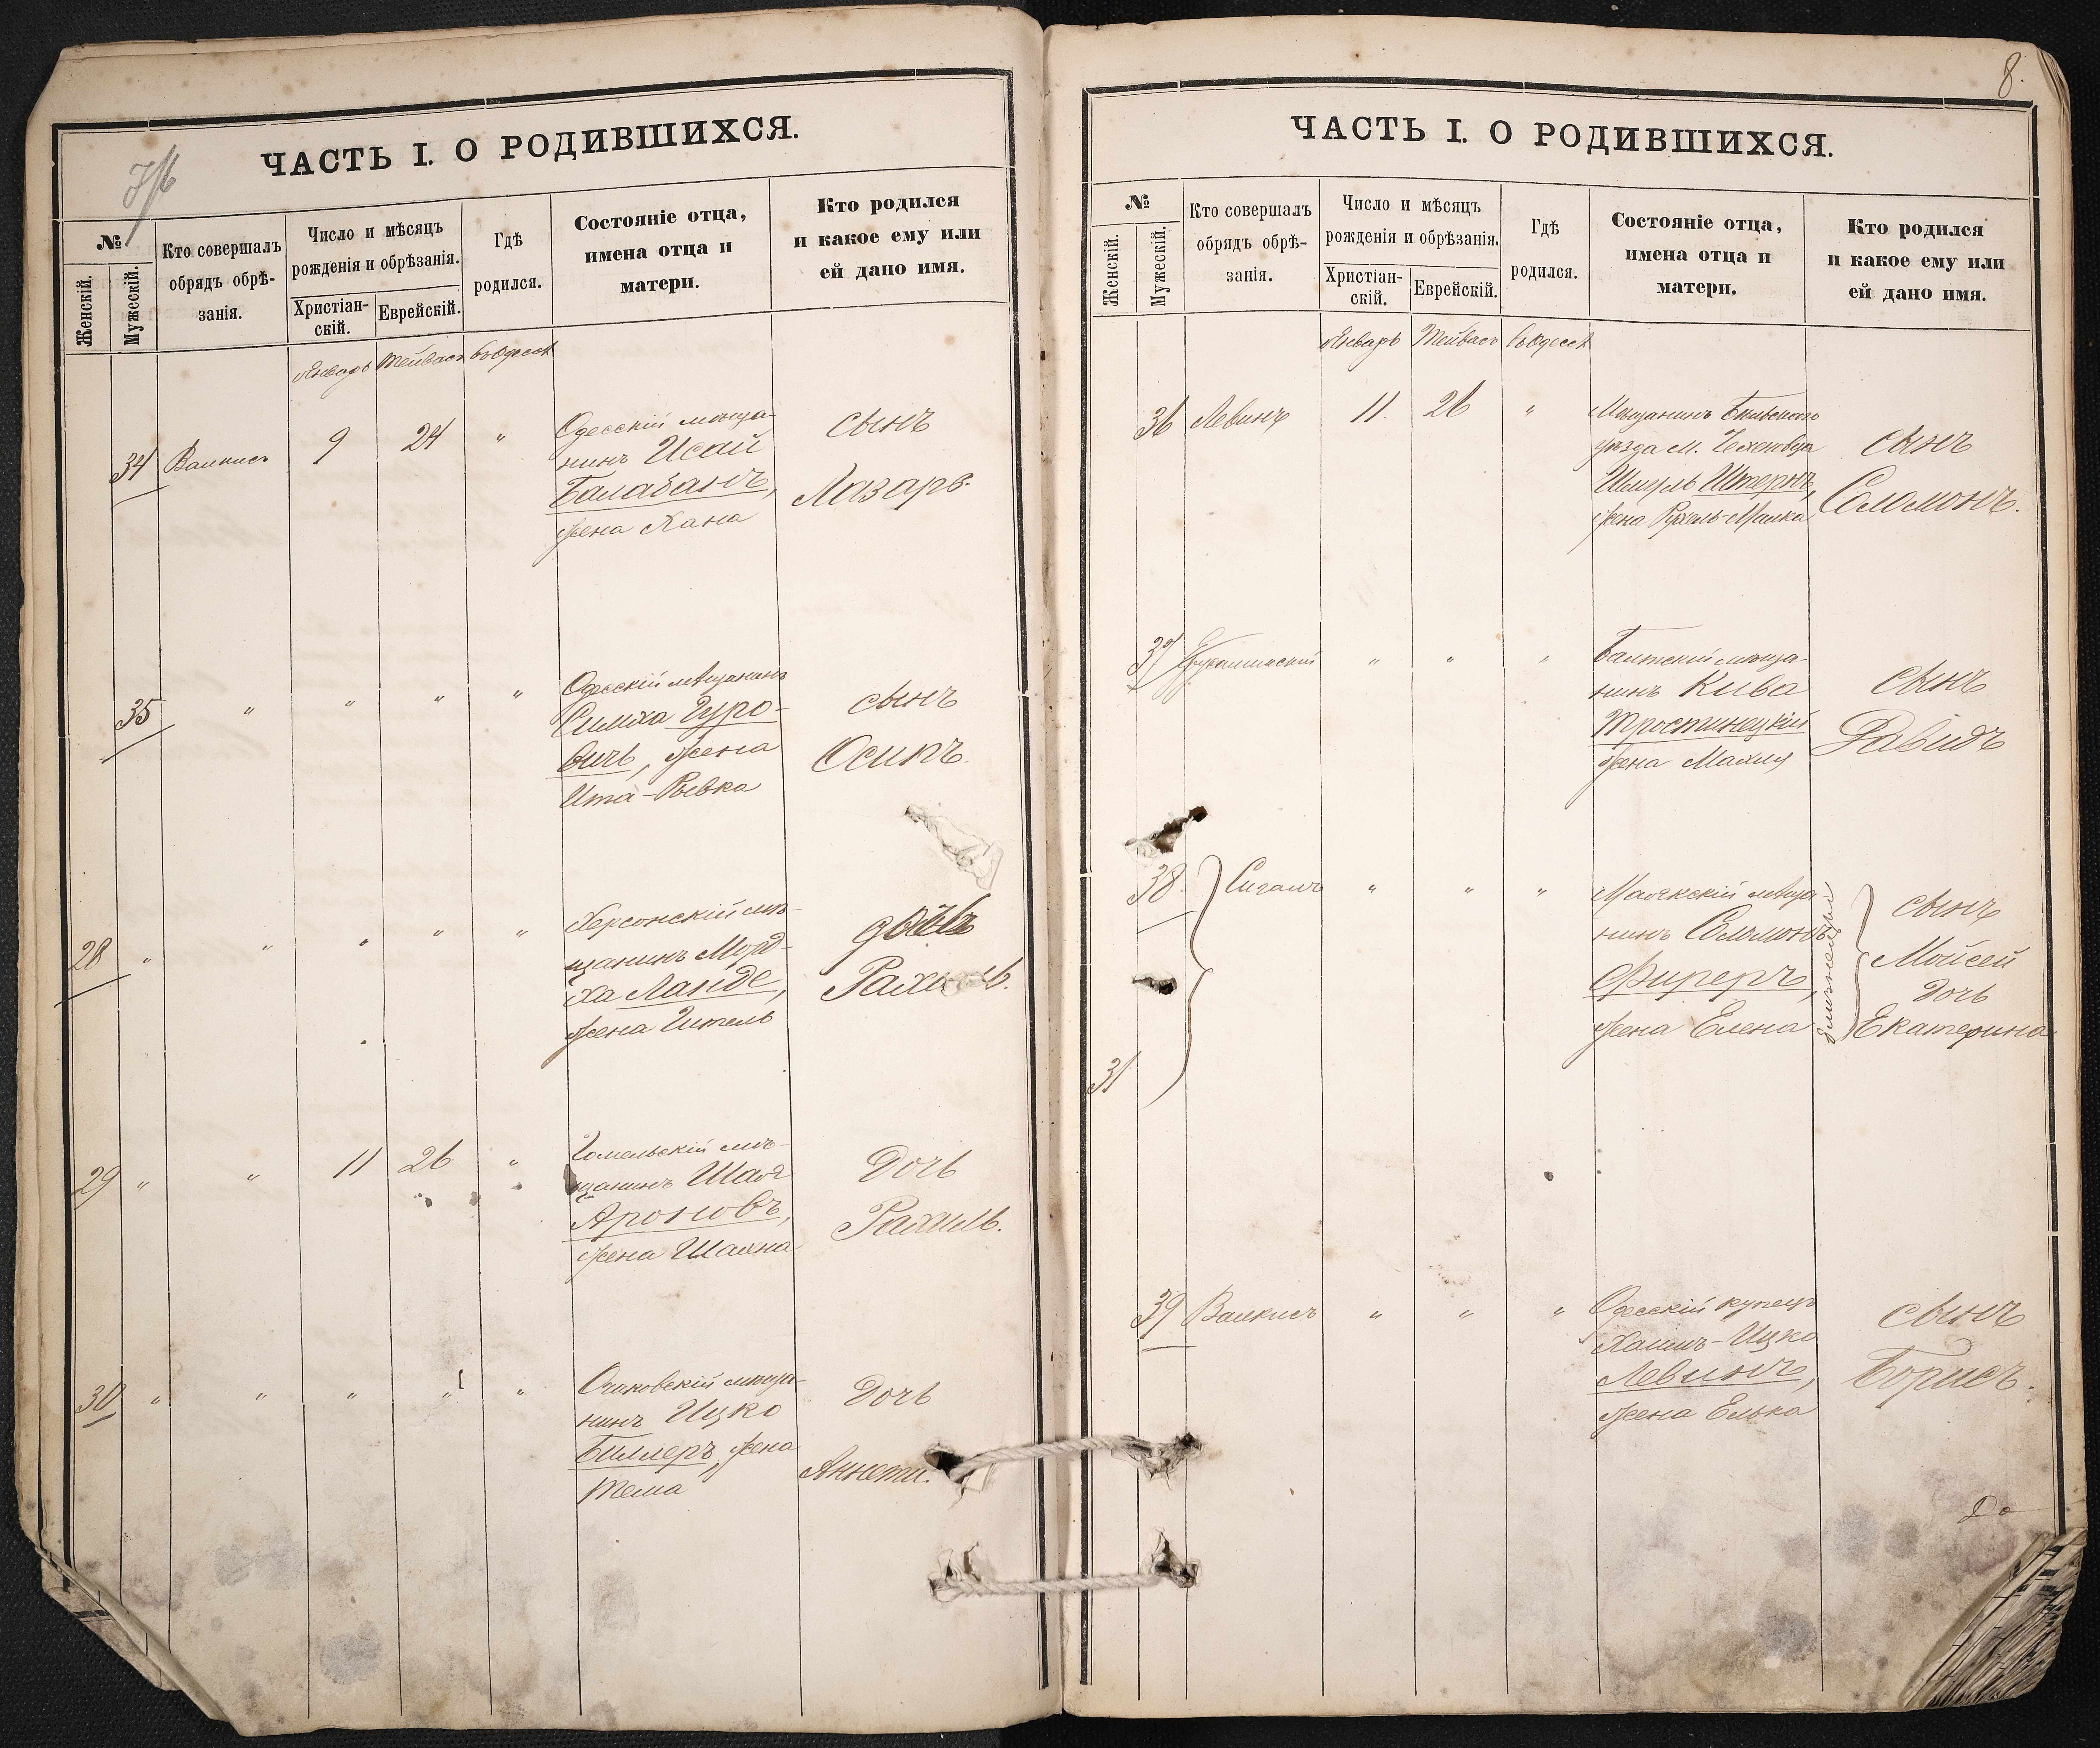 ЧАСТЬ I. О РОДИВШИХСЯ.
№
Женскій.
Мужескій.
Кто совершалъ
обрядъ обрѣ-
занія.
Число и мѣсяцъ
рожденія и обрѣзанія.
Христіан-
скій.
Еврейскій.
Гдѣ
родился.
Состояніе отца,
имена отца и
матери.
Кто родился
и какое ему или
ей дано имя.
Январь Тейвасъ въ Одессѣ
34 Валкисъ 9 24 "
Одесскій мѣща-
нинъ Исай
Балабанъ,
жена Хана
сынъ
Лазарь.
35 " " " "
Одесскій мѣщанинъ
Симха Гуро-
вичъ, жена
Ита-Ривка
сынъ
Осипъ.
28 " " " " "
Херсонскій мѣ-
щанинъ Морд-
ха Ланде,
жена Гитель
дочь
Рахиль.
29 " " 11 26 "
Гомельскій мѣ-
щанинъ Шая
Ароновъ,
жена Шаяна
Дочь
Рахиль.
30 " " " " "
Очаковскій мѣща-
нинъ Ицко
Биллеръ, жена
Тема
Дочь
Аннета.
8.
ЧАСТЬ I. О РОДИВШИХСЯ.
№
Женскій.
Мужескій.
Кто совершалъ
обрядъ обрѣ-
занія.
Число и мѣсяцъ
рожденія и обрѣзанія.
Христіан-
скій.
Еврейскій.
Гдѣ
родился.
Состояніе отца,
имена отца и
матери.
Кто родился
и какое ему или
ей дано имя.
Январь Тейвасъ въ Одессѣ
36 Левинъ 11. 26 "
Мѣщанинъ Бѣльскаго
уѣзда м. Цехановца
Шмуль Штернъ,
жена Рухель-Малка
сынъ
Соломонъ.
37 " " "
Балтскій мѣща-
нинъ Кива
Тростинецкій
жена Махля
сынъ
Давидъ
38. Сигалъ " " "
Маякскій мѣща-
нинъ Соломонъ
Фиреръ,
жена Елена
близнецы
сынъ
Мойсей
Дочь
Екатерина
31
39 Валкисъ " " "
Одесскій купецъ
Хаимъ-Ицко
Левинъ,
жена Елька
сынъ
Борисъ.
До